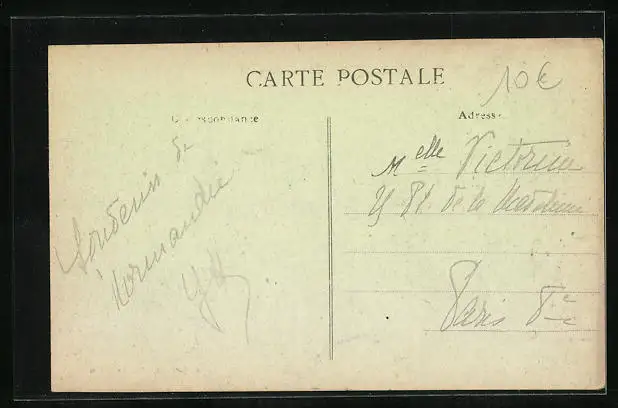 CARTE POSTALE
10€
Correspondance
Adresse
Souvenir de
Normandie
Melle Victorin
Pl. de la Madeleine
Paris 8e